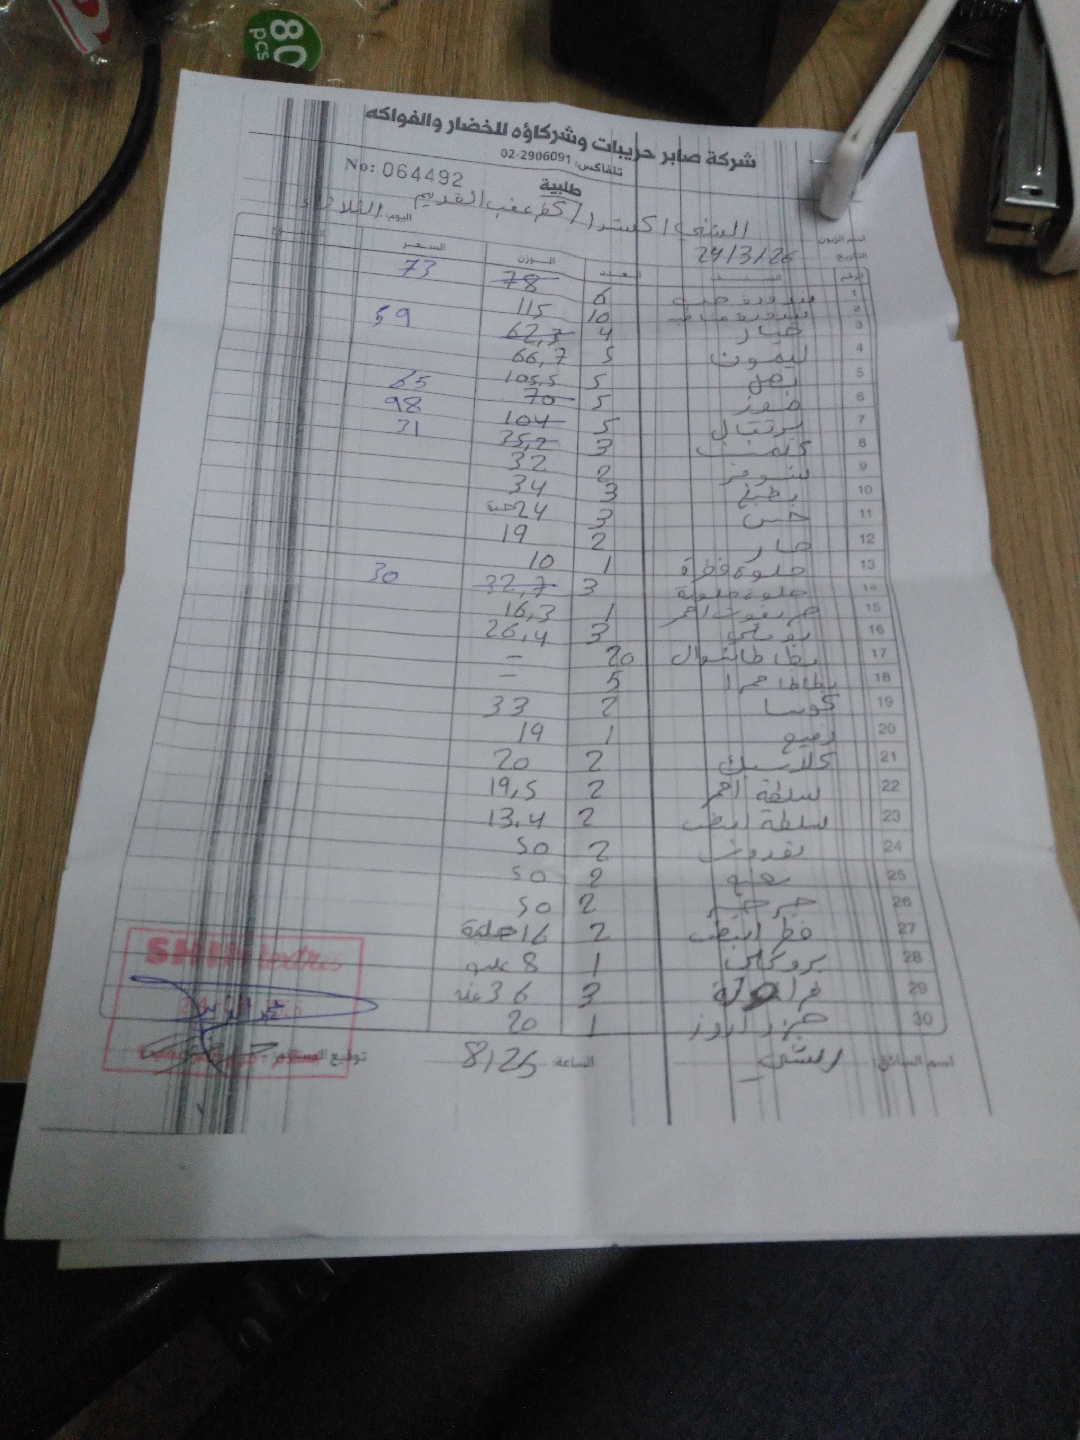 80
pcs
شركة صابر حريبات وشركاؤه للخضار والفواكه
تلفاكس: 02-2906091
No: 064492
طلبية
اسم الزبون الشني اكسترا / كفر عقب القديم
التاريخ 24/3/26 اليوم: الثلاثاء
الرقم الصنف العدد الوزن السعر
1 بندورة حب 6 78 73
2 بندورة 10 115
3 خيار 4 62,3 59
4 ليمون 5 66,7
5 بصل 5 105,5
6 موز 5 70 65
7 برتقال 5 104 98
8 كلمنت 3 35,2 31
9 2 32
10 بطيخ 3 34
11 خس 3 24
12 حار 2 19
13 حلوة 1 10
14 حلوة 3 32,7 30
15 احمر 1 16,3
16 3 26,4
17 بطاطا شوال 20 -
18 بطاطا حمرا 5 -
19 كوسا 2 33
20 1 19
21 كلاسيك 2 20
22 سلطة احمر 2 19,5
23 سلطة ابيض 2 13,4
24 بقدونس 2 50
25 نعنع 2 50
26 2 50
27 فطر ابيض 2 16 علبة
28 بروكلي 1 8
29 فراولة 3 36 علبة
30 جزر 1 20
اسم السائق: الساعة 8:25 توقيع المستلم